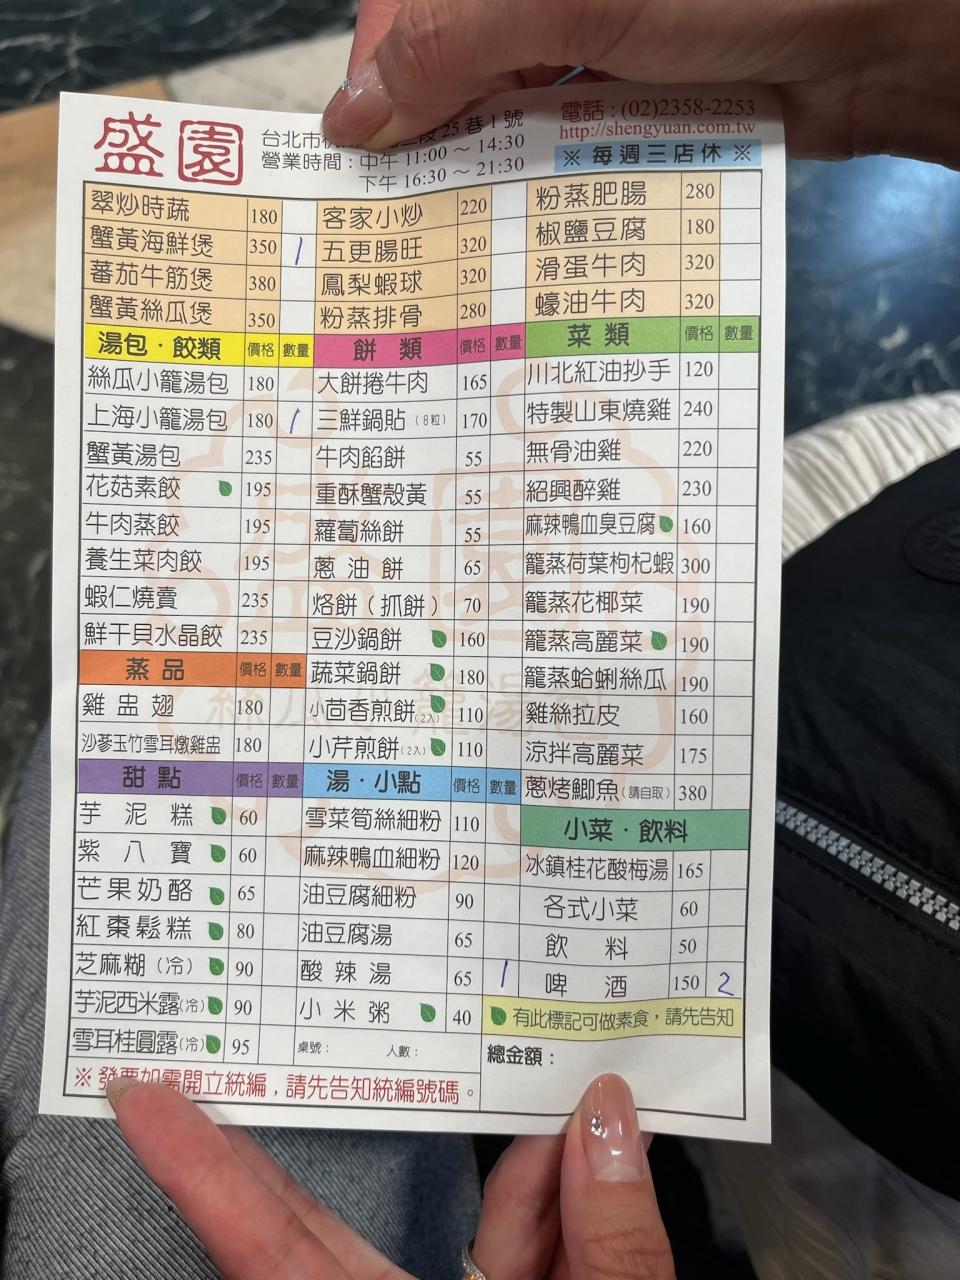 盛園
台北市杭 段25巷1號
營業時間：中午 11:00 ～ 14:30
下午 16:30 ～ 21:30
電話：(02)2358-2253
http://shengyuan.com.tw
※ 每週三店休 ※
翠炒時蔬 180 客家小炒 220 粉蒸肥腸 280
蟹黃海鮮煲 350 1 五更腸旺 320 椒鹽豆腐 180
蕃茄牛筋煲 380 鳳梨蝦球 320 滑蛋牛肉 320
蟹黃絲瓜煲 350 粉蒸排骨 280 蠔油牛肉 320
湯包．餃類 價格 數量 餅 類 價格 數量 菜 類 價格 數量
絲瓜小籠湯包 180 大餅捲牛肉 165 川北紅油抄手 120
上海小籠湯包 180 1 三鮮鍋貼（8粒） 170 特製山東燒雞 240
蟹黃湯包 235 牛肉餡餅 55 無骨油雞 220
花菇素餃 195 重酥蟹殼黃 55 紹興醉雞 230
牛肉蒸餃 195 蘿蔔絲餅 55 麻辣鴨血臭豆腐 160
養生菜肉餃 195 蔥油餅 65 籠蒸荷葉枸杞蝦 300
蝦仁燒賣 235 烙餅（抓餅） 70 籠蒸花椰菜 190
鮮干貝水晶餃 235 豆沙鍋餅 160 籠蒸高麗菜 190
蒸 品 價格 數量 蔬菜鍋餅 180 籠蒸蛤蜊絲瓜 190
雞盅翅 180 小茴香煎餅（2入） 110 雞絲拉皮 160
沙蔘玉竹雪耳燉雞盅 180 小芹煎餅（2入） 110 涼拌高麗菜 175
甜 點 價格 數量 湯．小點 價格 數量 蔥烤鯽魚（請自取） 380
芋泥糕 60 雪菜筍絲細粉 110 小菜．飲料
紫八寶 60 麻辣鴨血細粉 120 冰鎮桂花酸梅湯 165
芒果奶酪 65 油豆腐細粉 90 各式小菜 60
紅棗鬆糕 80 油豆腐湯 65 飲料 50
芝麻糊（冷） 90 酸辣湯 65 1 啤酒 150 2
芋泥西米露（冷） 90 小米粥 40 有此標記可做素食，請先告知
雪耳桂圓露（冷） 95 桌號： 人數： 總金額：
※ 發票如需開立統編，請先告知統編號碼。